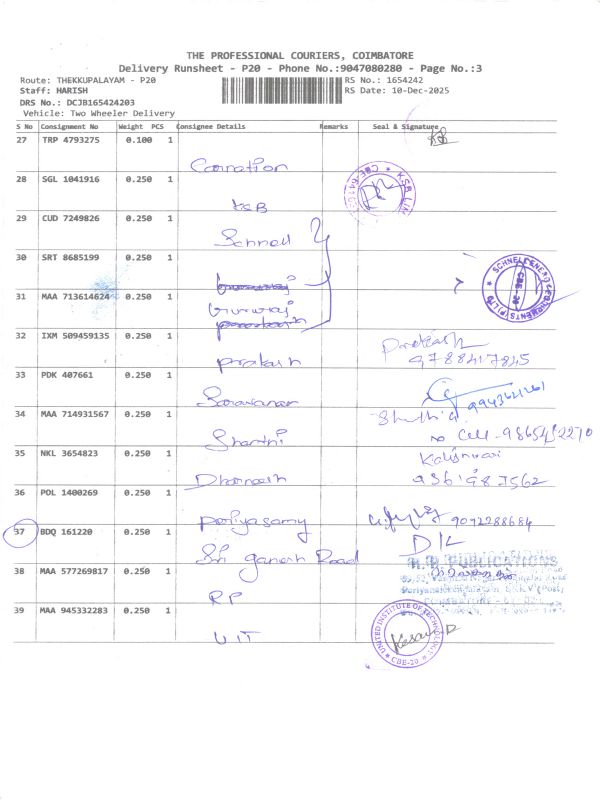 THE PROFESSIONAL COURIERS, COIMBATORE
Delivery Runsheet - P20 - Phone No.:9047080280 - Page No.:3
Route: THEKKUPALAYAM - P20 RS No.: 1654242
Staff: HARISH RS Date: 10-Dec-2025
DRS No.: DCJB165424203
Vehicle: Two Wheeler Delivery
S No Consignment No Weight PCS Consignee Details Remarks Seal & Signature
27 TRP 4793275 0.100 1
Carnation
28 SGL 1041916 0.250 1
KSB
29 CUD 7249826 0.250 1
Schnell
30 SRT 8685199 0.250 1
31 MAA 713614624 0.250 1
Gururaj
32 IXM 509459135 0.250 1
Prakash
Prakash
9788417845
33 PDK 407661 0.250 1
Saravanan
34 MAA 714931567 0.250 1
Shanthi
35 NKL 3654823 0.250 1
Dharnesh
36 POL 1400269 0.250 1
Periyasamy 9092288684
37 BDQ 161220 0.250 1
Sri ganesh Road D/L
38 MAA 577269817 0.250 1
RP
PUBLICATIONS
39 MAA 945332283 0.250 1
UIT
UNITED INSTITUTE OF TECHNOLOGY
CBE-20